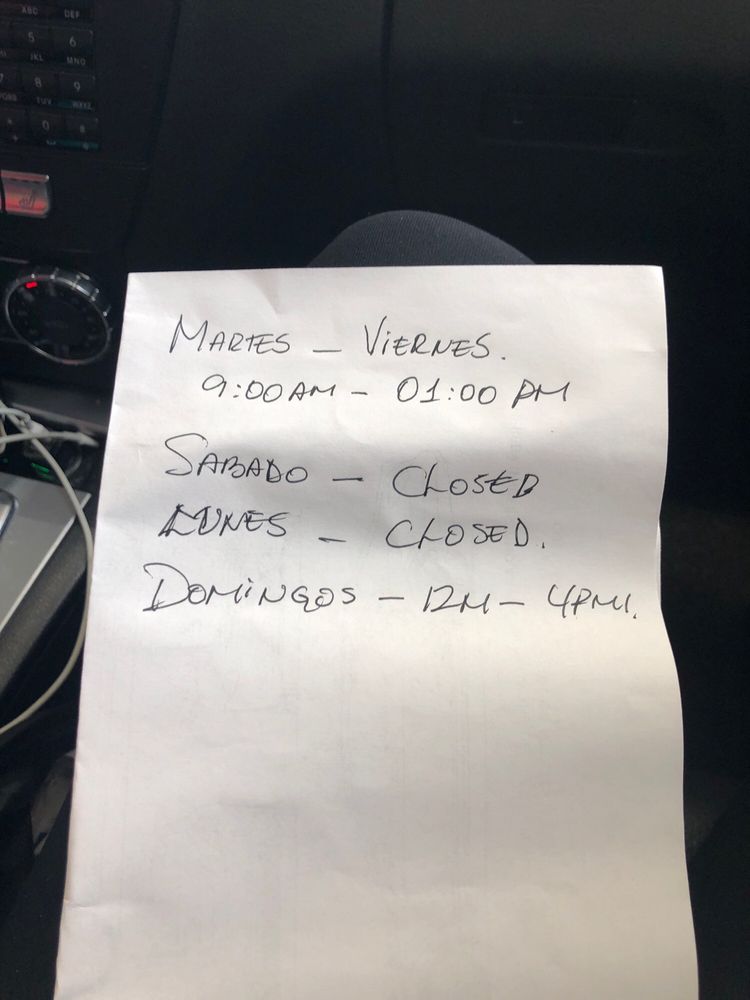 ABC DEF
5 6
JKL MNO
7 8 9
TUV WXYZ
* 0 #
MARTES – VIERNES.
9:00 AM – 01:00 PM
SABADO – CLOSED
LUNES – CLOSED.
DOMINGOS – 12M – 4PM.